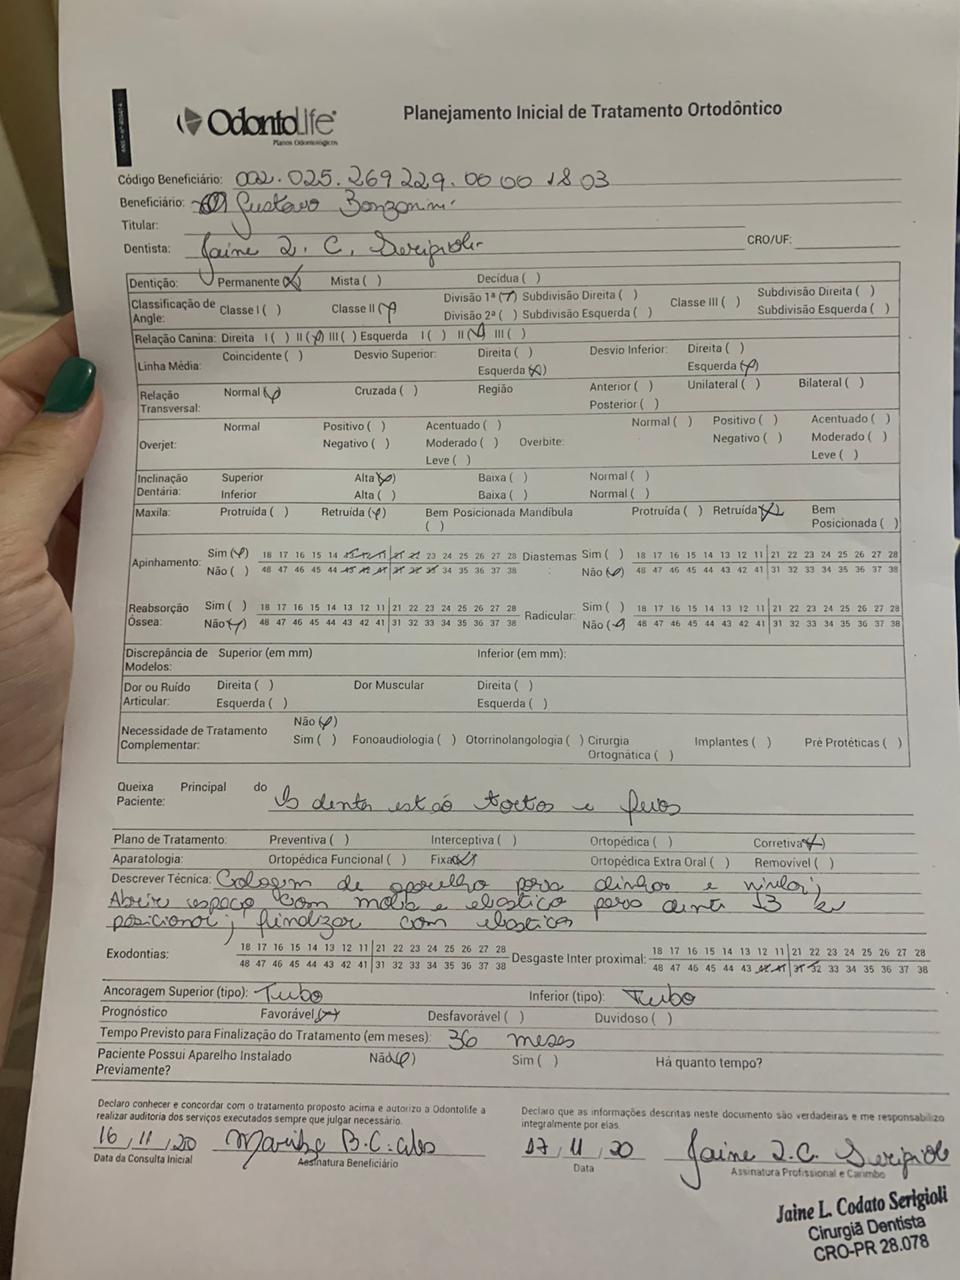 OdontoLife
Planos Odontológicos
Planejamento Inicial de Tratamento Ortodôntico
Código Beneficiário: 002.025.269229.00 00 18 03
Beneficiário: Gustavo Bonzanini
Titular:
Dentista: Jaine L. C. Serigioli CRO/UF:
Dentição: Permanente (X) Mista ( ) Decídua ( )
Classificação de Angle: Classe I ( ) Classe II (X) Divisão 1ª (X) Subdivisão Direita ( ) Classe III ( ) Subdivisão Direita ( )
Divisão 2ª ( ) Subdivisão Esquerda ( ) Subdivisão Esquerda ( )
Relação Canina: Direita I ( ) II (X) III ( ) Esquerda I ( ) II (X) III ( )
Linha Média: Coincidente ( ) Desvio Superior: Direita ( ) Desvio Inferior: Direita ( )
Esquerda (X) Esquerda (X)
Relação Transversal: Normal (X) Cruzada ( ) Região Anterior ( ) Unilateral ( ) Bilateral ( )
Posterior ( )
Overjet: Normal Positivo ( ) Acentuado ( ) Overbite: Normal ( ) Positivo ( ) Acentuado ( )
Negativo ( ) Moderado ( ) Negativo ( ) Moderado ( )
Leve ( ) Leve ( )
Inclinação Dentária: Superior Alta (X) Baixa ( ) Normal ( )
Inferior Alta ( ) Baixa ( ) Normal ( )
Maxila: Protruída ( ) Retruída (X) Bem Posicionada ( ) Mandíbula Protruída ( ) Retruída (X) Bem Posicionada ( )
Apinhamento: Sim (X) 18 17 16 15 14 13 12 11 21 22 23 24 25 26 27 28 Diastemas Sim ( ) 18 17 16 15 14 13 12 11 21 22 23 24 25 26 27 28
Não ( ) 48 47 46 45 44 43 42 41 31 32 33 34 35 36 37 38 Não (X) 48 47 46 45 44 43 42 41 31 32 33 34 35 36 37 38
Reabsorção Óssea: Sim ( ) 18 17 16 15 14 13 12 11 21 22 23 24 25 26 27 28 Radicular: Sim ( ) 18 17 16 15 14 13 12 11 21 22 23 24 25 26 27 28
Não (X) 48 47 46 45 44 43 42 41 31 32 33 34 35 36 37 38 Não (X) 48 47 46 45 44 43 42 41 31 32 33 34 35 36 37 38
Discrepância de Modelos: Superior (em mm) Inferior (em mm):
Dor ou Ruído Articular: Direita ( ) Dor Muscular Direita ( )
Esquerda ( ) Esquerda ( )
Necessidade de Tratamento Complementar: Não (X)
Sim ( ) Fonoaudiologia ( ) Otorrinolangologia ( ) Cirurgia Ortognática ( ) Implantes ( ) Pré Protéticas ( )
Queixa Principal do Paciente: Os dentes estão tortos e feios
Plano de Tratamento: Preventiva ( ) Interceptiva ( ) Ortopédica ( ) Corretiva (X)
Aparatologia: Ortopédica Funcional ( ) Fixa (X) Ortopédica Extra Oral ( ) Removível ( )
Descrever Técnica: Colagem de aparelho para alinhar e nivelar;
Abrir espaço com mola e elastico para dente 13 se
posicionar; finalizar com elasticos
Exodontias: 18 17 16 15 14 13 12 11 21 22 23 24 25 26 27 28 Desgaste Inter proximal: 18 17 16 15 14 13 12 11 21 22 23 24 25 26 27 28
48 47 46 45 44 43 42 41 31 32 33 34 35 36 37 38 48 47 46 45 44 43 42 41 31 32 33 34 35 36 37 38
Ancoragem Superior (tipo): Tubo Inferior (tipo): Tubo
Prognóstico Favorável (X) Desfavorável ( ) Duvidoso ( )
Tempo Previsto para Finalização do Tratamento (em meses): 36 meses
Paciente Possui Aparelho Instalado Previamente? Não (X) Sim ( ) Há quanto tempo?
Declaro conhecer e concordar com o tratamento proposto acima e autorizo a Odontolife a
realizar auditoria dos serviços executados sempre que julgar necessário.
Declaro que as informações descritas neste documento são verdadeiras e me responsabilizo
integralmente por elas.
16, 11, 20
Data da Consulta Inicial Assinatura Beneficiário
17, 11, 20 Jaine L. C. Serigioli
Data Assinatura Profissional e Carimbo
Jaine L. Codato Serigioli
Cirurgiã Dentista
CRO-PR 28.078